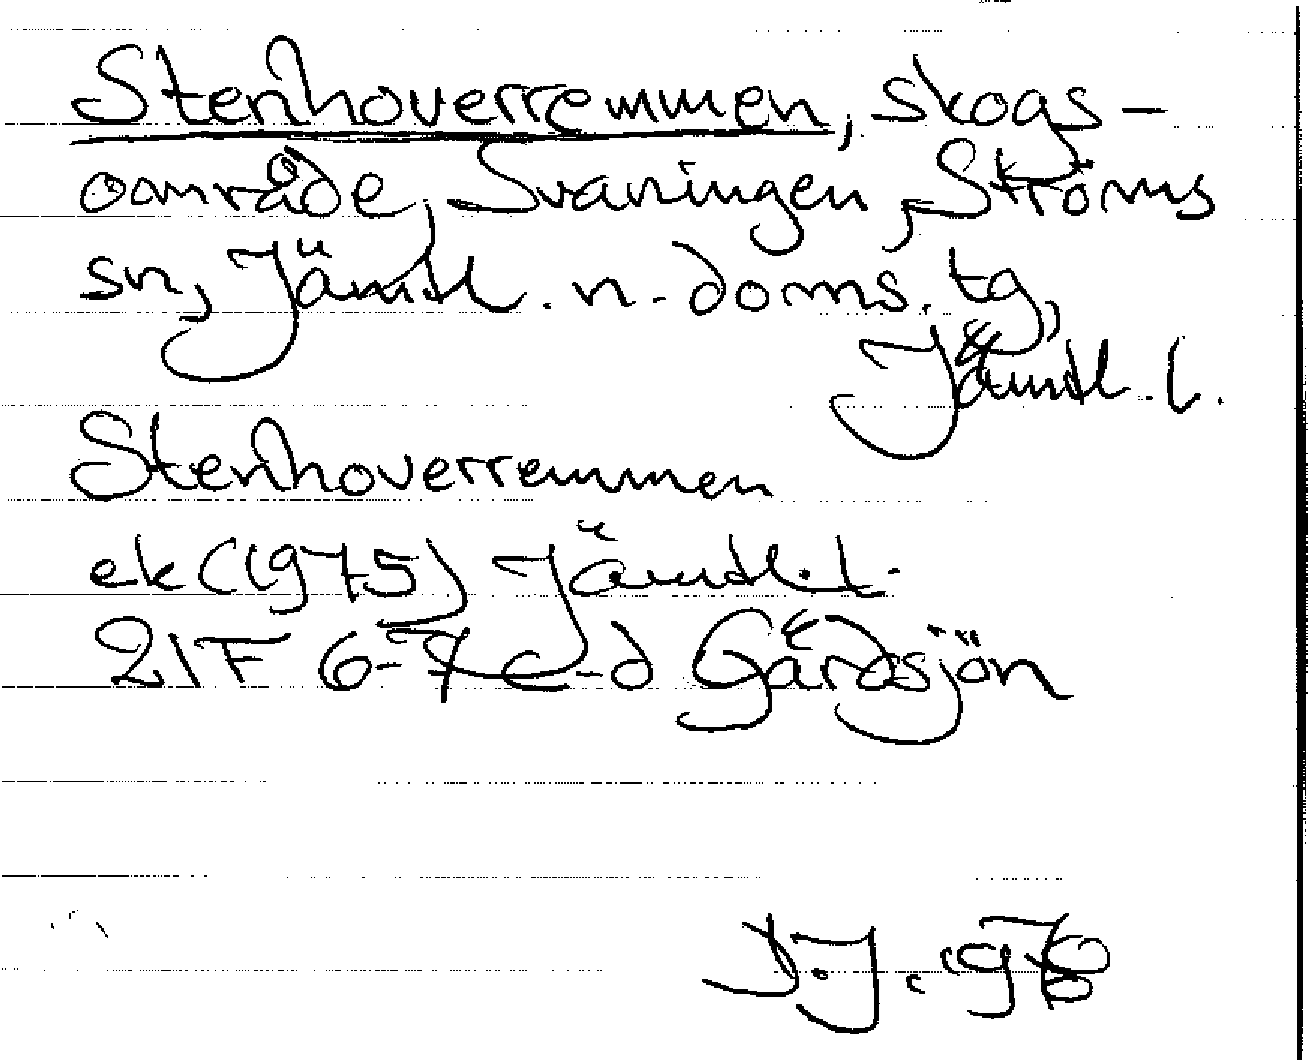 Stenhoverremmen, skogs-
område, Svaningen, Ströms
sn, Jämtl. n. doms. tg,
Jämtl. l.
Stenhoverremmen
ek (1975) Jämtl. l.
21F 6-7 c-d Gårdsjön